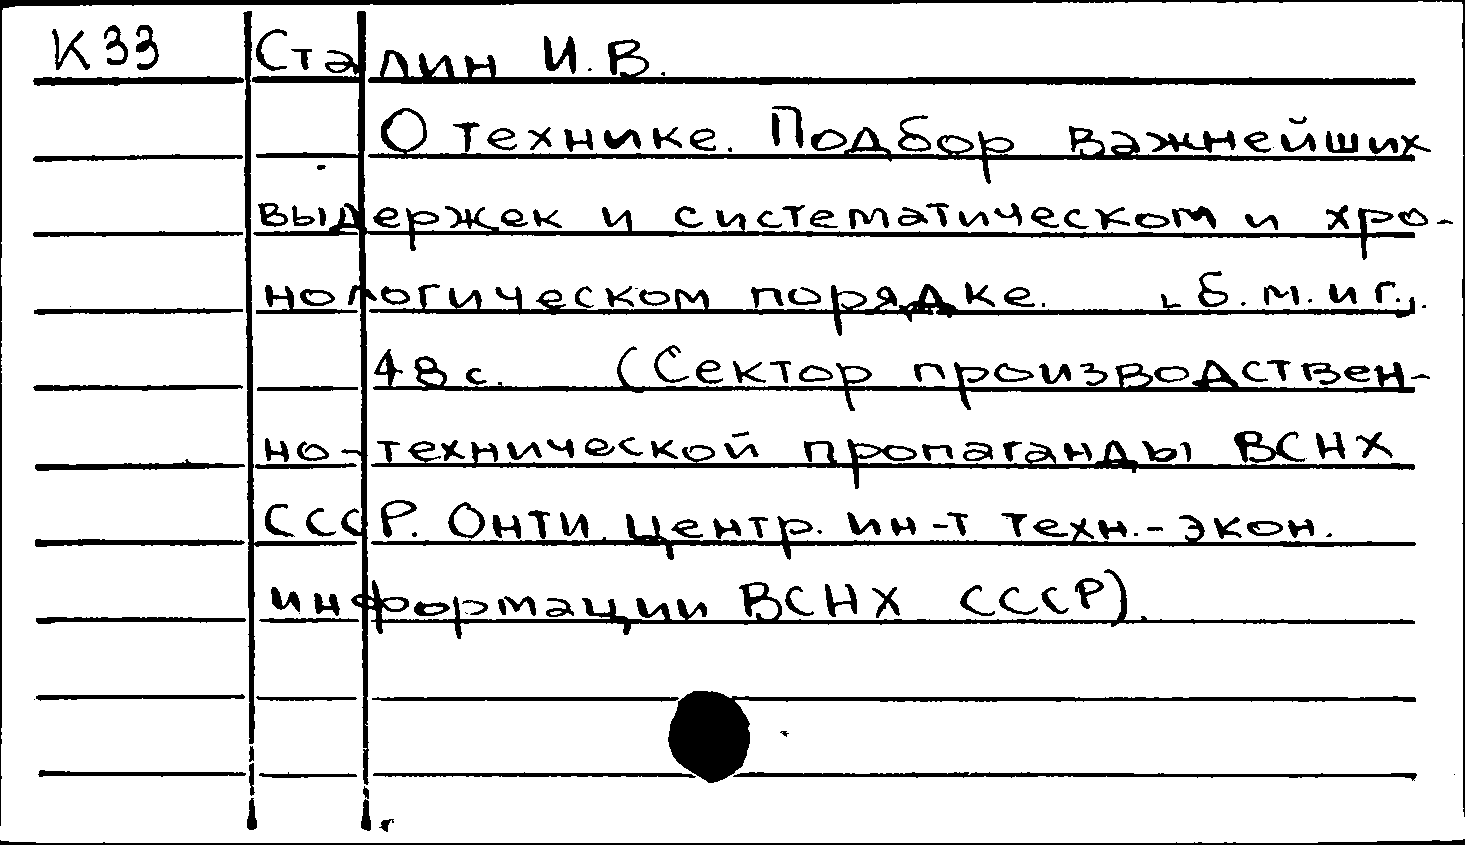 К33 Сталин И.В.
О технике. Подбор важнейших
выдержек и систематическом и хро-
нологическом порядке. [б.м. и г.].
48 с. (Сектор производствен-
но-технической пропаганды ВСНХ
СССР. ОНТИ. Центр. ин-т техн.-экон.
информации ВСНХ СССР).